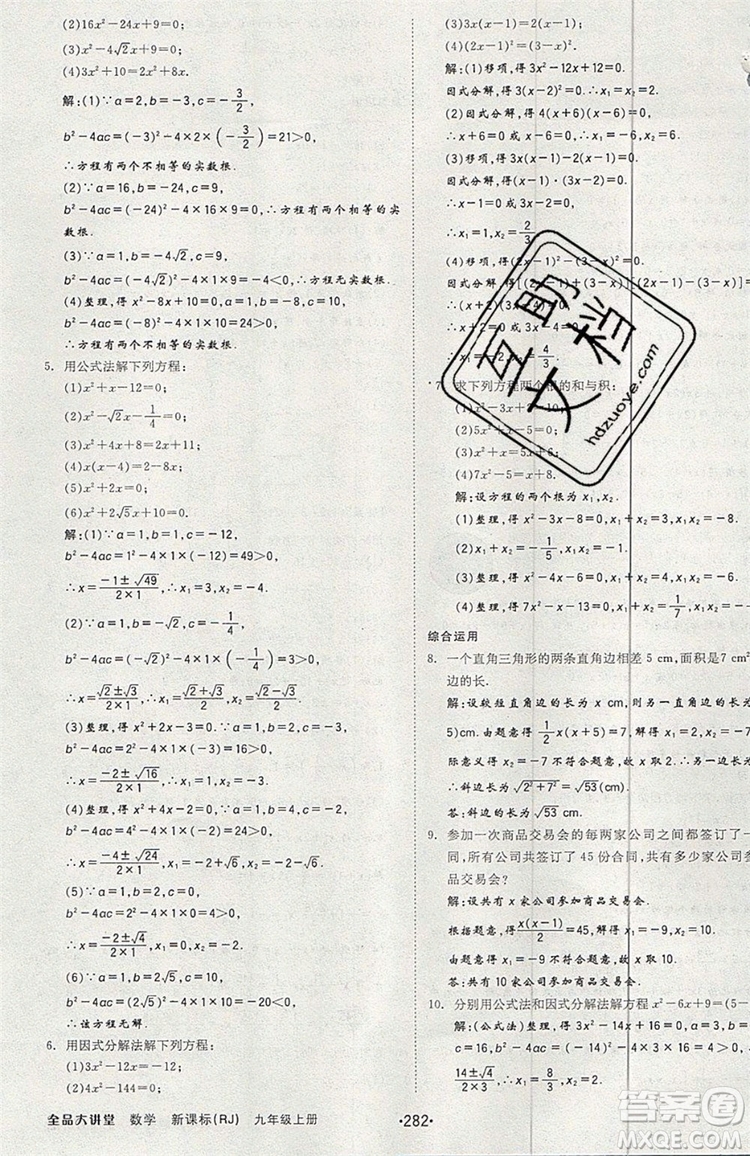 (2)16x²-24x+9=0;
(3)x²-4√2x+9=0;
(4)3x²+10=2x²+8x.
解:(1)∵a=2,b=-3,c=-3/2,
b²-4ac=(-3)²-4×2×(-3/2)=21>0,
∴方程有两个不相等的实数根.
(2)∵a=16,b=-24,c=9,
b²-4ac=(-24)²-4×16×9=0,∴方程有两个相等的实
数根.
(3)∵a=1,b=-4√2,c=9,
b²-4ac=(-4√2)²-4×1×9=-4<0,∴方程无实数根.
(4)整理,得x²-8x+10=0,∵a=1,b=-8,c=10,
b²-4ac=(-8)²-4×1×10=24>0,∴方程有两个不相等
的实数根.
5. 用公式法解下列方程:
(1)x²+x-12=0;
(2)x²-√2x-1/4=0;
(3)x²+4x+8=2x+11;
(4)x(x-4)=2-8x;
(5)x²+2x=0;
(6)x²+2√5x+10=0.
解:(1)∵a=1,b=1,c=-12,
b²-4ac=1²-4×1×(-12)=49>0,
∴x=(-1±√49)/(2×1),x₁=3,x₂=-4.
(2)∵a=1,b=-√2,c=-1/4,
b²-4ac=(-√2)²-4×1×(-1/4)=3>0,
∴x=(√2±√3)/(2×1),x₁=(√2+√3)/2,x₂=(√2-√3)/2.
(3)整理,得x²+2x-3=0,∵a=1,b=2,c=-3,
b²-4ac=2²-4×1×(-3)=16>0,
∴x=(-2±√16)/(2×1),x₁=1,x₂=-3.
(4)整理,得x²+4x-2=0,∵a=1,b=4,c=-2,
b²-4ac=4²-4×1×(-2)=24>0,
∴x=(-4±√24)/(2×1),x₁=-2+√6,x₂=-2-√6.
(5)∵a=1,b=2,c=0,b²-4ac=2²-4×1×0=4>0,
∴x=(-2±√4)/(2×1),x₁=0,x₂=-2.
(6)∵a=1,b=2√5,c=10,
b²-4ac=(2√5)²-4×1×10=-20<0,
∴该方程无解.
6. 用因式分解法解下列方程:
(1)3x²-12x=-12;
(2)4x²-144=0;
(3)3x(x-1)=2(x-1);
(4)(2x-1)²=(3-x)².
解:(1)移项,得3x²-12x+12=0.
因式分解,得3(x-2)²=0.∴x₁=x₂=2.
(2)因式分解,得4(x+6)(x-6)=0,
∴x+6=0或x-6=0,∴x₁=-6,x₂=6.
(3)移项,得3x(x-1)-2(x-1)=0.
因式分解,得(x-1)(3x-2)=0.
∴x-1=0或3x-2=0,∴x₁=1,x₂=2/3.
(4)移项,得(2x-1)²-(3-x)²=0.
因式分解,得[(2x-1)+(3-x)][(2x-1)-(3-x)]=
∴(x+2)(3x-4)=0,∴x+2=0或3x-4=0,
∴x₁=-2,x₂=4/3.
7. 求下列方程两个根的和与积:
(1)x²-3x+2=10;
(2)5x²+x-5=0;
(3)x²+x=5x+6;
(4)7x²-5=x+8.
解:设方程的两个根为x₁,x₂.
(1)整理,得x²-3x-8=0,x₁+x₂=3,x₁x₂=-8.
(2)x₁+x₂=-1/5,x₁x₂=-1.
(3)整理,得x²-4x-6=0,x₁+x₂=4,x₁x₂=-6.
(4)整理,得7x²-x-13=0,x₁+x₂=1/7,x₁x₂=-
综合运用
8. 一个直角三角形的两条直角边相差5 cm,面积是7 cm²
边的长.
解:设较短直角边的长为x cm,则另一直角边的长为
5)cm.由题意得1/2x(x+5)=7,解得x₁=2,x₂=-
际意义得x=-7不符合题意,应舍去,∴x=2,x+5=
∴斜边长为√(2²+7²)=√53(cm).
答:斜边的长为√53 cm.
9. 参加一次商品交易会的每两家公司之间都签订了一
同,所有公司共签订了45份合同,共有多少家公司参
品交易会?
解:设共有x家公司参加商品交易会.
根据题意,得x(x-1)/2=45,解得x₁=-9,x₂=10.
由题意得x=-9不符合题意,应舍去,∴x=10.
答:共有10家公司参加商品交易会.
10. 分别用公式法和因式分解法解方程x²-6x+9=(5-
解:(公式法)整理,得3x²-14x+16=0,∵a=3,b=
c=16,b²-4ac=(-14)²-4×3×16=4>0,∴x=
(14±√4)/(2×3),x₁=8/3,x₂=2.
全品大讲堂 数学 新课标(RJ) 九年级上册
·282·
互助文档
hdzuoye.com
答案圈
MXQE.COM